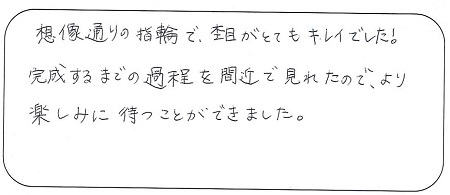 想像通りの指輪で、杢目がとてもキレイでした!
完成するまでの過程を間近で見れたので、より
楽しみに待つことができました。